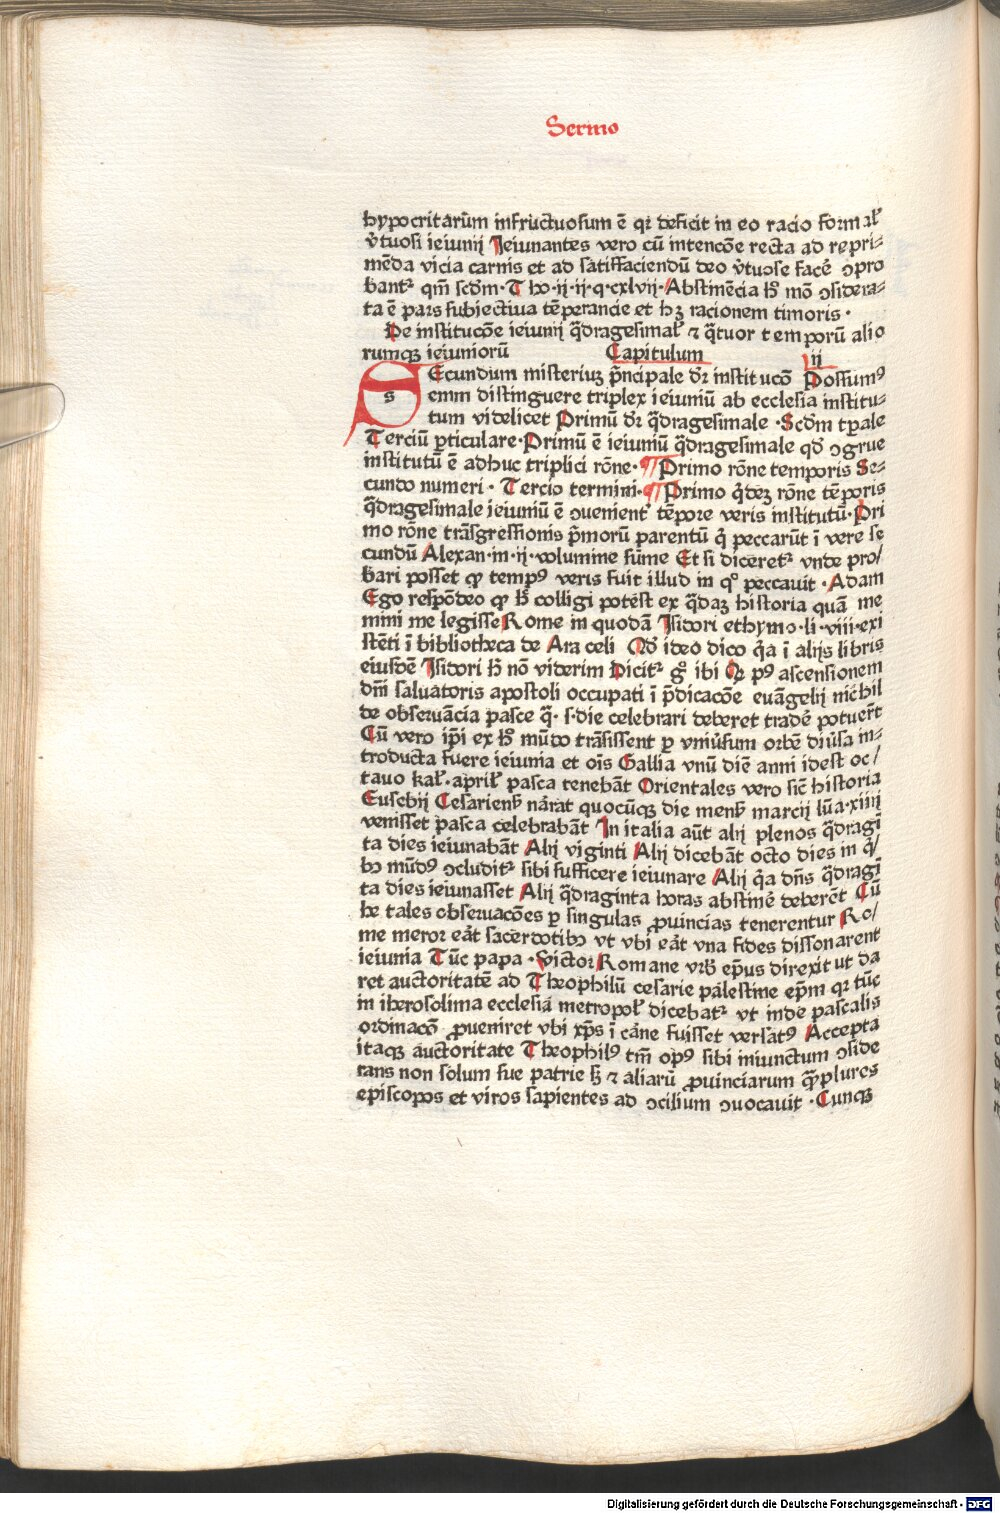 Sermo
hypocritarūm infructuosum ē qꝛ deficit in eo racio formal̓
v̓tuosi ieiunij Ieiunantes vero cū intencōe recta ad repri⸗
mēda vicia carnis et ad satiffaciendū deo v̓tuose facē ꝯpro
bantᷣ qm̄ scd̄m· Tho·ij·ij·q·cxlvij· Abstinēcia hͦ mō ꝯsidera⸗
ta ē pars subiectiua tēperancie et hꝫ racionem timoris·
De institucōe ieiunij q̄dragesimal̓ ⁊ q̄tuor temporū alio
rumqꝫ ieiuniorū Capitulum iij
SEcundum misteriuꝫ p̄ncipale dꝛ̄ institucō Possumꝰ
enim distinguere triplex ieiuniū ab ecclesia institu⸗
tum videlicet Primū dꝛ̄ q̄dragesimale· Scd̄m tꝑale
Terciū ꝑticulare· Primū ē ieiuniū q̄dragesimale qd̄ ꝯgrue
institutū ē adhuc triplici rōne· ¶ Primo rōne temporis Se⸗
cundo numeri· Tercio termini· ¶ Primo q̓deꝫ rōne tēporis
q̄dragesimale ieiuniū ē ꝯuenient̓ tēpore veris institutū· Pri
mo rōne trāsgressionis p̄morū parentū q̓ peccarūt ī vere se
cundū Alexan·in·ij·volumine sūme Et si diceretᷣ vnde pro/
bari posset ꝙ tempꝰ veris fuit illud in qͦ peccauit· Adam
Ego respōdeo ꝙ hͦ colligi potest ex q̄daꝫ historia quā me
mini me legisse Rome in quodā Isidori ethymo·li·viii·exi
stēti ī bibliotheca de Ara celi Qd̄ ideo dico q̓a ī alijs libris
eiusdē Isidori hͦ nō viderim Dicitᷣ gͦ ibi Qꝛ pꝰ ascensionem
dn̄i saluatoris apostoli occupati ī p̄dicacōe euāgelij nichil
de obseruācia pasce q̄· s·die celebrari deberet tradē potuer̄t
Cū vero ip̄i ex hͦ mūdo trāsissent ꝑ vniu̓sum orbē diu̓sa in⸗
troducta fuere ieiunia et oīs Gallia vnū diē anni idest oc/
tauo kal̓·april̓ pasca tenebāt Orientales vero sic̄ historia
Eusebij Cesarienẜ nārat quocūqꝫ die menẜ marcij lūa·xiiij
venisset pasca celebrabāt In italia aūt alij plenos q̄dragī
ta dies ieiunabāt Alij viginti Alij dicebāt octo dies in q̓/
bꝰ mūdꝰ ꝯcluditᷣ sibi sufficere ieiunare Alij q̓a dn̄s q̄dragī
ta dies ieiunasset Alij q̄draginta horas abstinē deberēt Cū
he tales obseruacōes ꝑ singulas ꝓuincias tenerentur Ro/
me meror eāt sacerdotibꝰ vt vbi eāt vna fides dissonarent
ieiunia Tūc papa· Victor Romane vrb̓ ep̄us direxit ut da
ret auctoritatē ad Theophilū cesarie palestine ep̄m qꝛ tūc
in iherosolima ecclesiā metropol̓ dicebatᷣ vt inde pascalis
ordinacō ꝓueniret vbi xp̄s ī carne fuisset versatꝰ Accepta
itaqꝫ auctoritate Theophilꝰ tm̄ opꝰ sibi iniunctum ꝯside
rans non solum sue patrie sꝫ ⁊ aliarū ꝓuinciarum qꝫplures
episcopos et viros sapientes ad ꝯcilium ꝯuocauit· Cunqꝫ
Digitalisierung gefördert durch die Deutsche Forschungsgemeinschaft - DFG